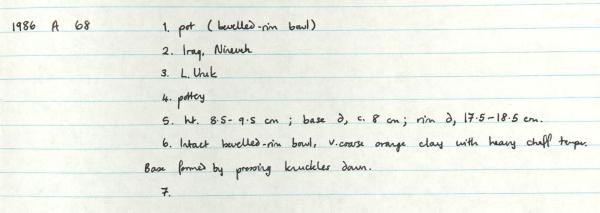 1986 A 68 1. pot (bevelled-rim bowl)
2. Iraq, Nineveh
3. L. Uruk
4. pottery
5. ht. 8.5-9.5 cm ; base d, c. 8 cm ; rim d, 17.5-18.5 cm.
6. Intact bevelled-rim bowl, v. coarse orange clay with heavy chaff temper.
Base formed by pressing knuckles down.
7.